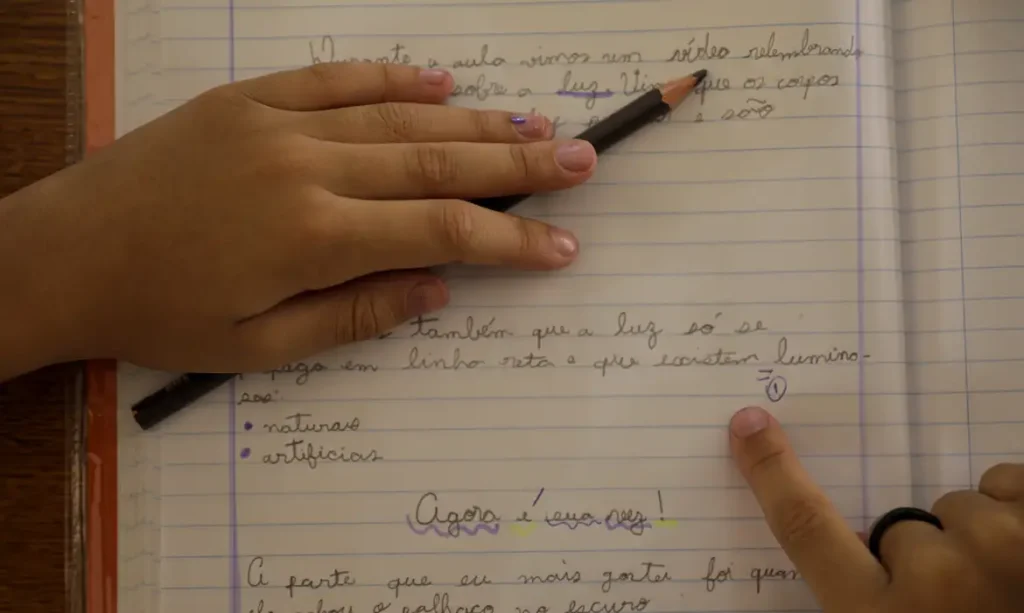 Durante a aula vimos um vídeo relembrando
sobre a luz. que os corpos
e são
também que a luz só se
em linha reta e que existem lumino-
sos:
naturais
artificias
Agora é sua vez!
A parte que eu mais gostei foi
o palhaço no escuro
①